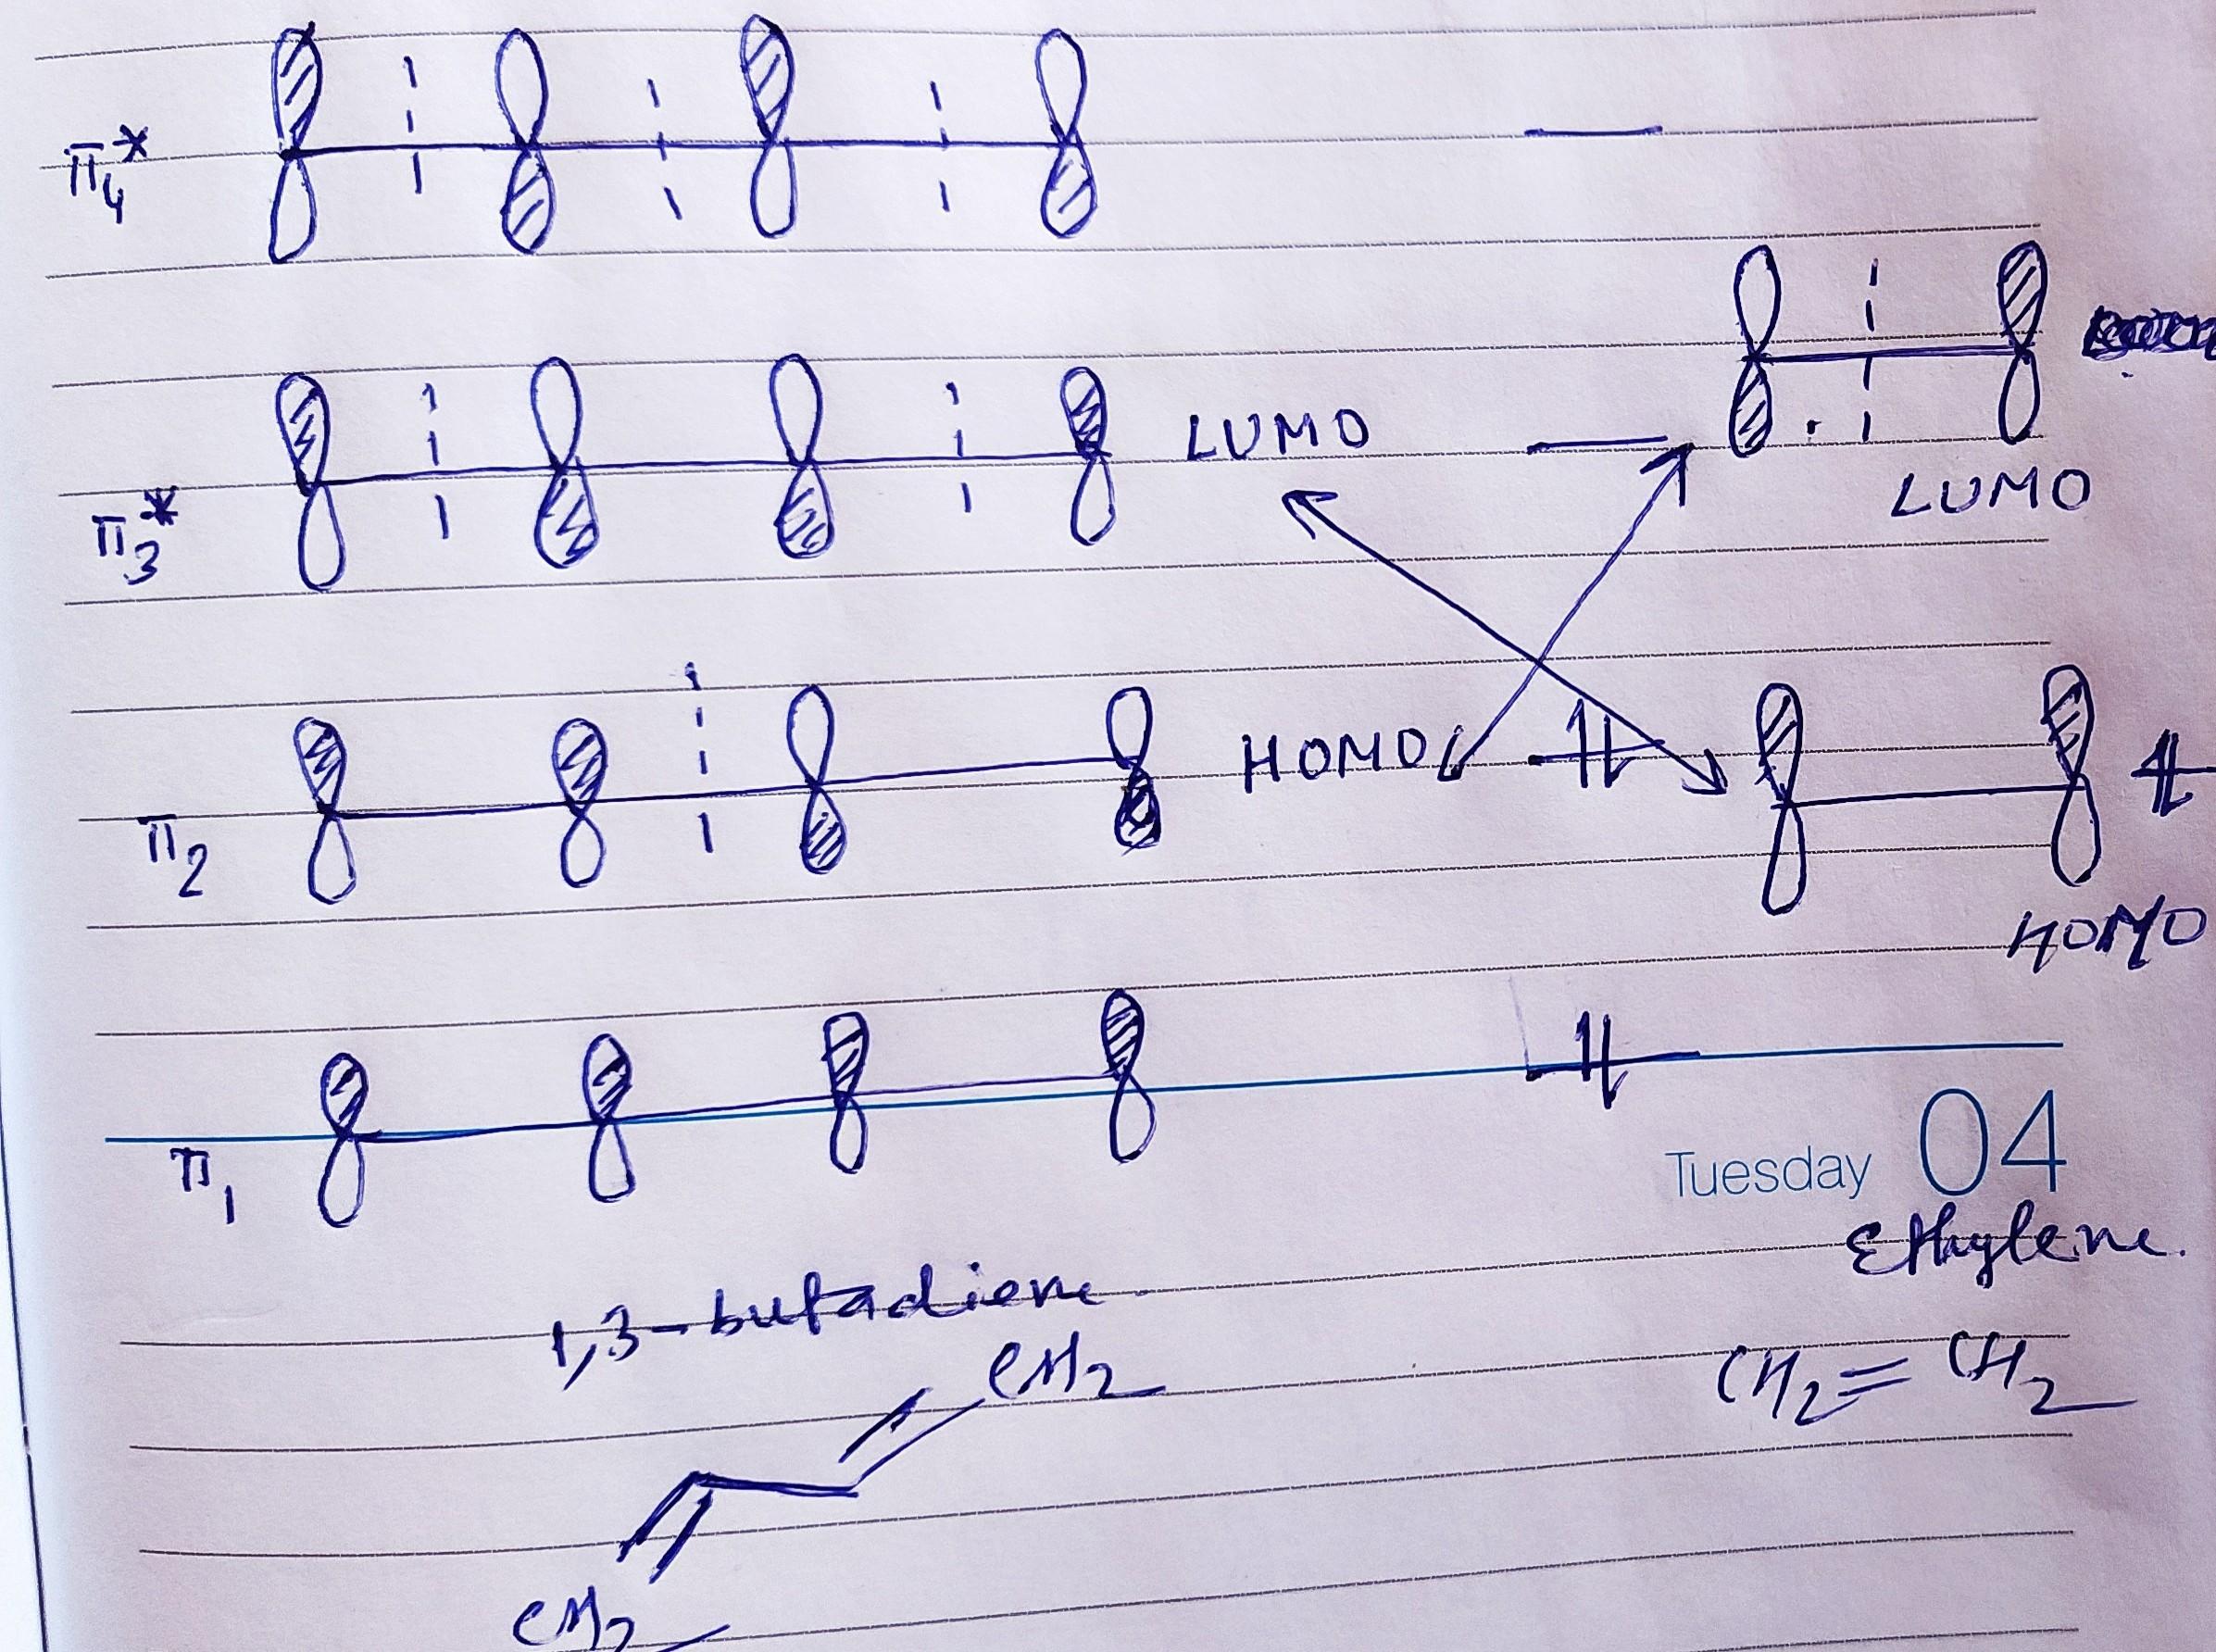 π4*
π3* LUMO
LUMO
π2 HOMO
HOMO
π1
Tuesday 04
Ethylene.
1,3-butadiene
CH2
CH2=CH2
CH2